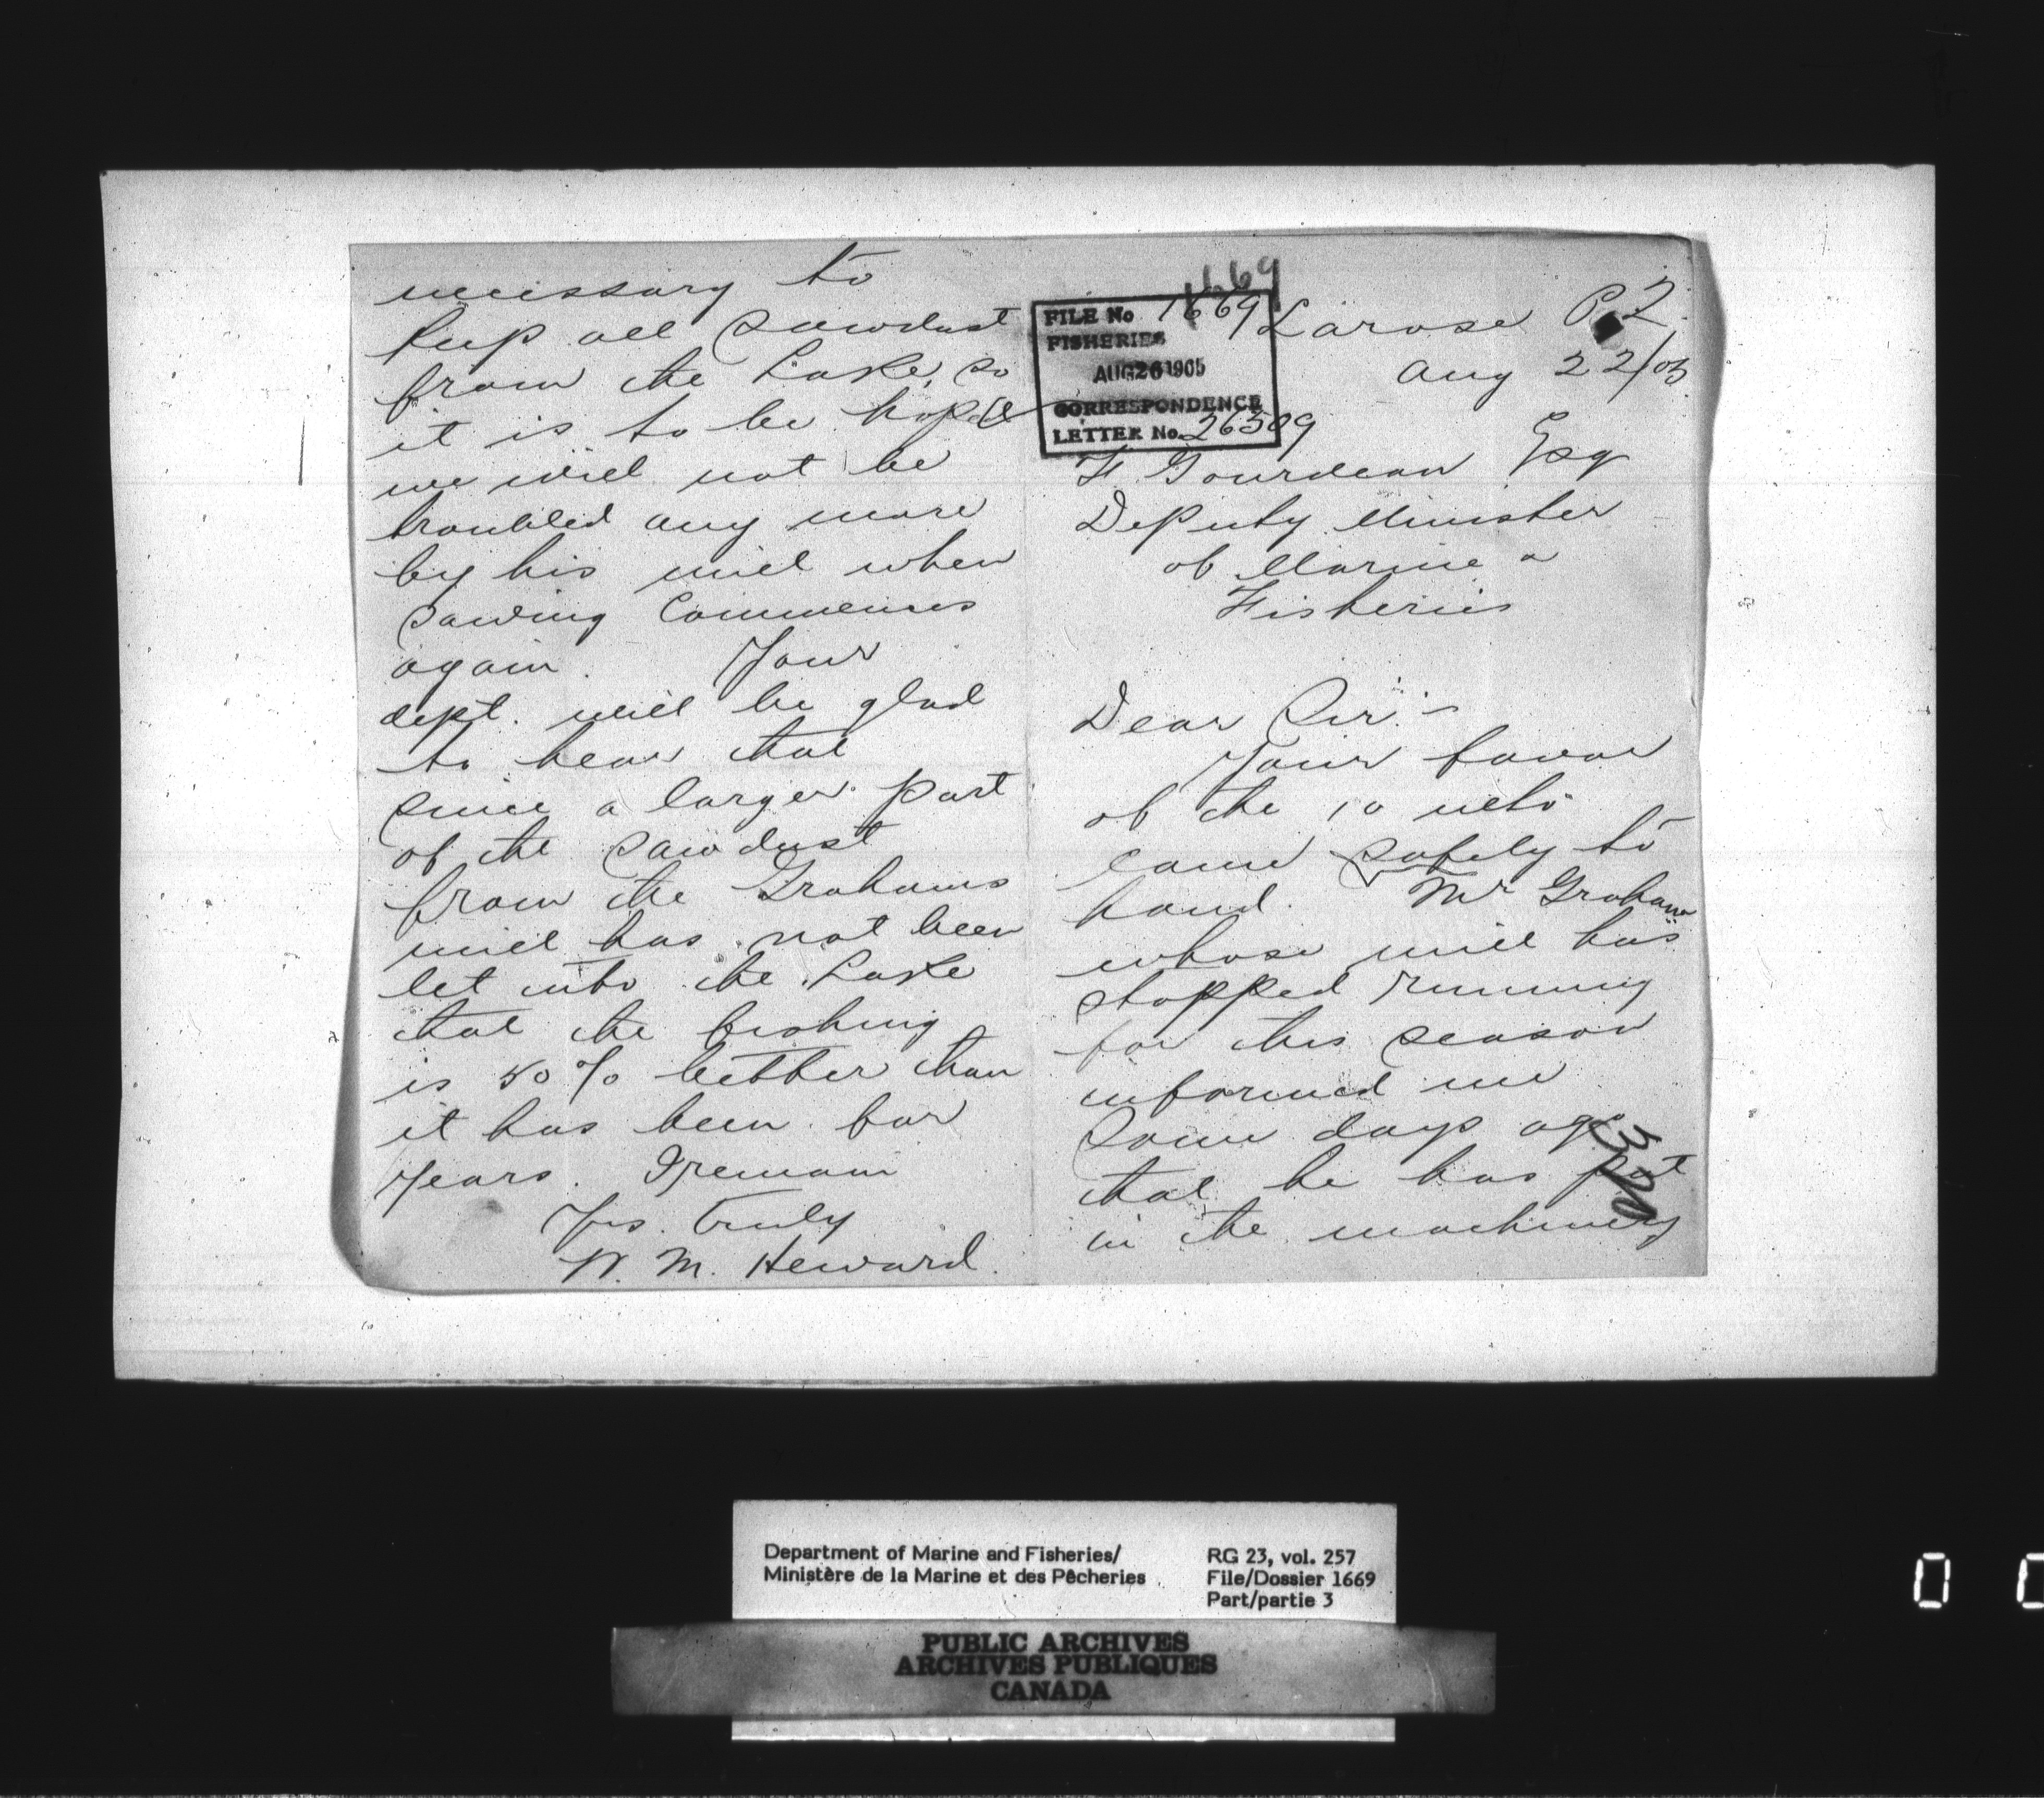 1669
FILE No 1669
FISHERIES
AUG 26 1905
CORRESPONDENCE
LETTER No. 26509
Larose P.Q.
Aug 22/05
F. Gourdeau Esq
Deputy Minister
of Marine &
Fisheries
Dear Sir:-
Your favor
of the 10 ulto
came safely to
hand. Mr Graham
whose mill has
stopped running
for this season
informed me
some days ago
that he has put
in the machinery
necessary to
keep all sawdust
from the Lake, so
it is to be hoped
we will not be
troubled any more
by his mill when
sawing commences
again. Your
dept. will be glad
to hear that
since a larger part
of the sawdust
from the Grahams
mill has not been
let into the Lake
that the fishing
is 50% better than
it has been for
years. I remain
Yrs. Truly
W. M. Heward.
Department of Marine and Fisheries/
Ministère de la Marine et des Pêcheries
RG 23, vol. 257
File/Dossier 1669
Part/partie 3
PUBLIC ARCHIVES
ARCHIVES PUBLIQUES
CANADA